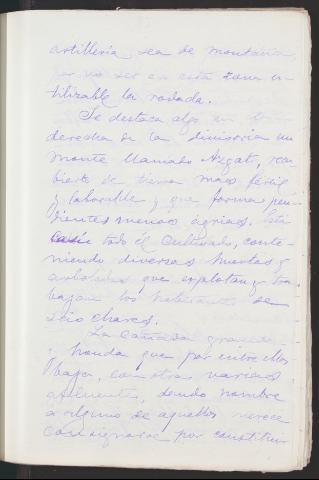 artillería sea de montaña,
por no ser en esta zona u-
tilizable la rodada.
Se destaca algo en
derecha de la divisoria un
monte llamado Azgat, cu-
bierto de tierra mas fértil
y laborable y que forma pen-
dientes menos agrias. Está
casi todo él cultivado, conte-
niendo diversas huertas y
arbolados que explotan y tra-
bajan los habitantes de
chares.
La Cañada grande
honda que por entre ellos
baja, con otras varias
afluentes, dando nombre
a alguno de aquellos merece
consignarse por constituir